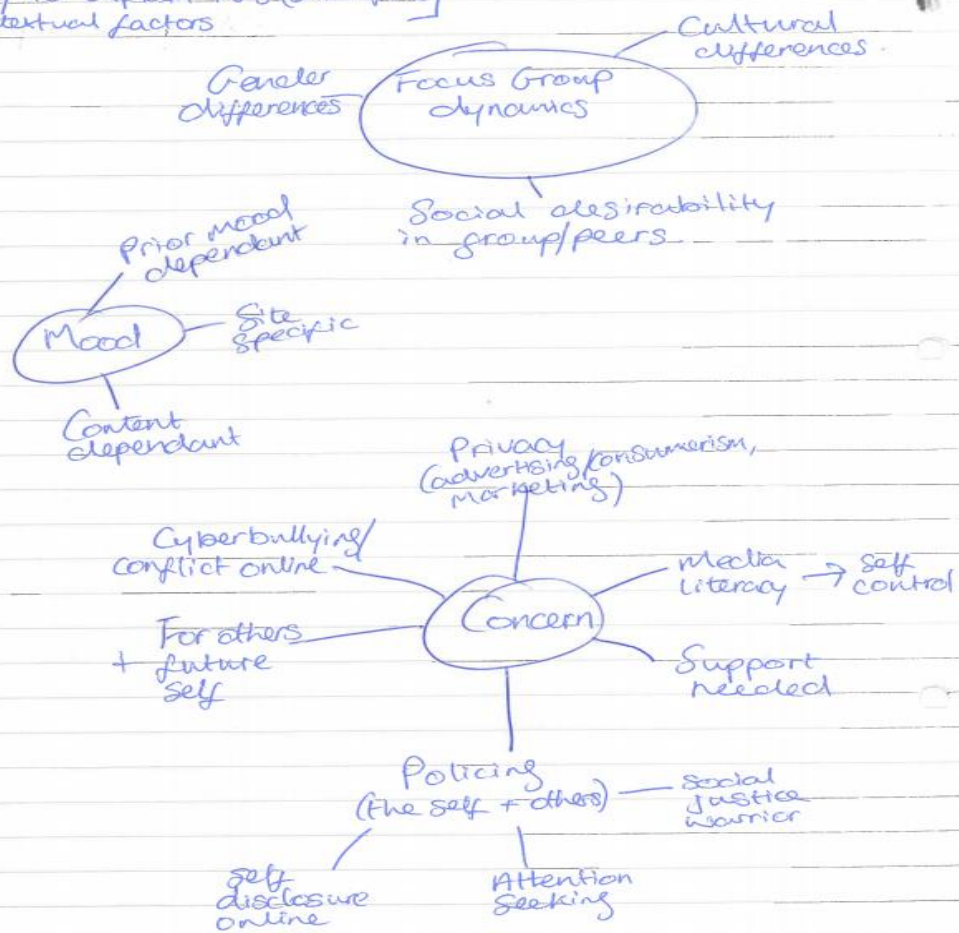 textual factors
Cultural
differences.
Gender
differences
Focus Group
dynamics
Social desirability
in group/peers
Prior mood
dependant
Mood
Site
specific
Content
dependant
Privacy
(advertising/consumerism,
marketing)
Cyberbullying/
conflict online
Media
Literacy → Self
control
Concern
For others
+ future
self
Support
needed
Policing
(the self + others)
Social
justice
warrior
Self
disclosure
online
Attention
Seeking